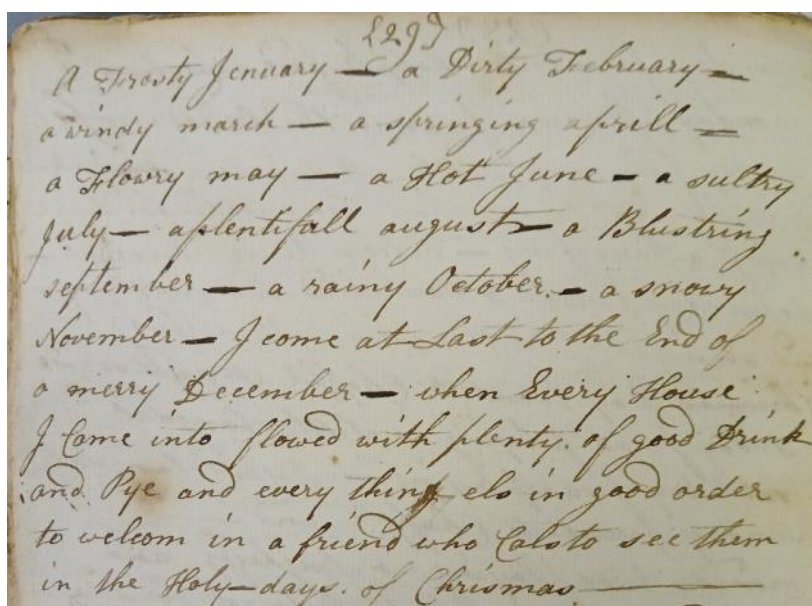 {29}
A Frosty Jenuary — a Dirty February —
a windy march — a springing aprill —
a Flowry may — a Hot June — a sultry
July — aplentifall august — a Blustring
september — a rainy October. — a snowy
November — J come at Last to the End of
a merry December — when Every House
J Come into flowed with plenty. of good Drink
and Pye and every thing els in good order
to welcom in a friend who Cals to see them
in the Holy-days. of Chrismas —